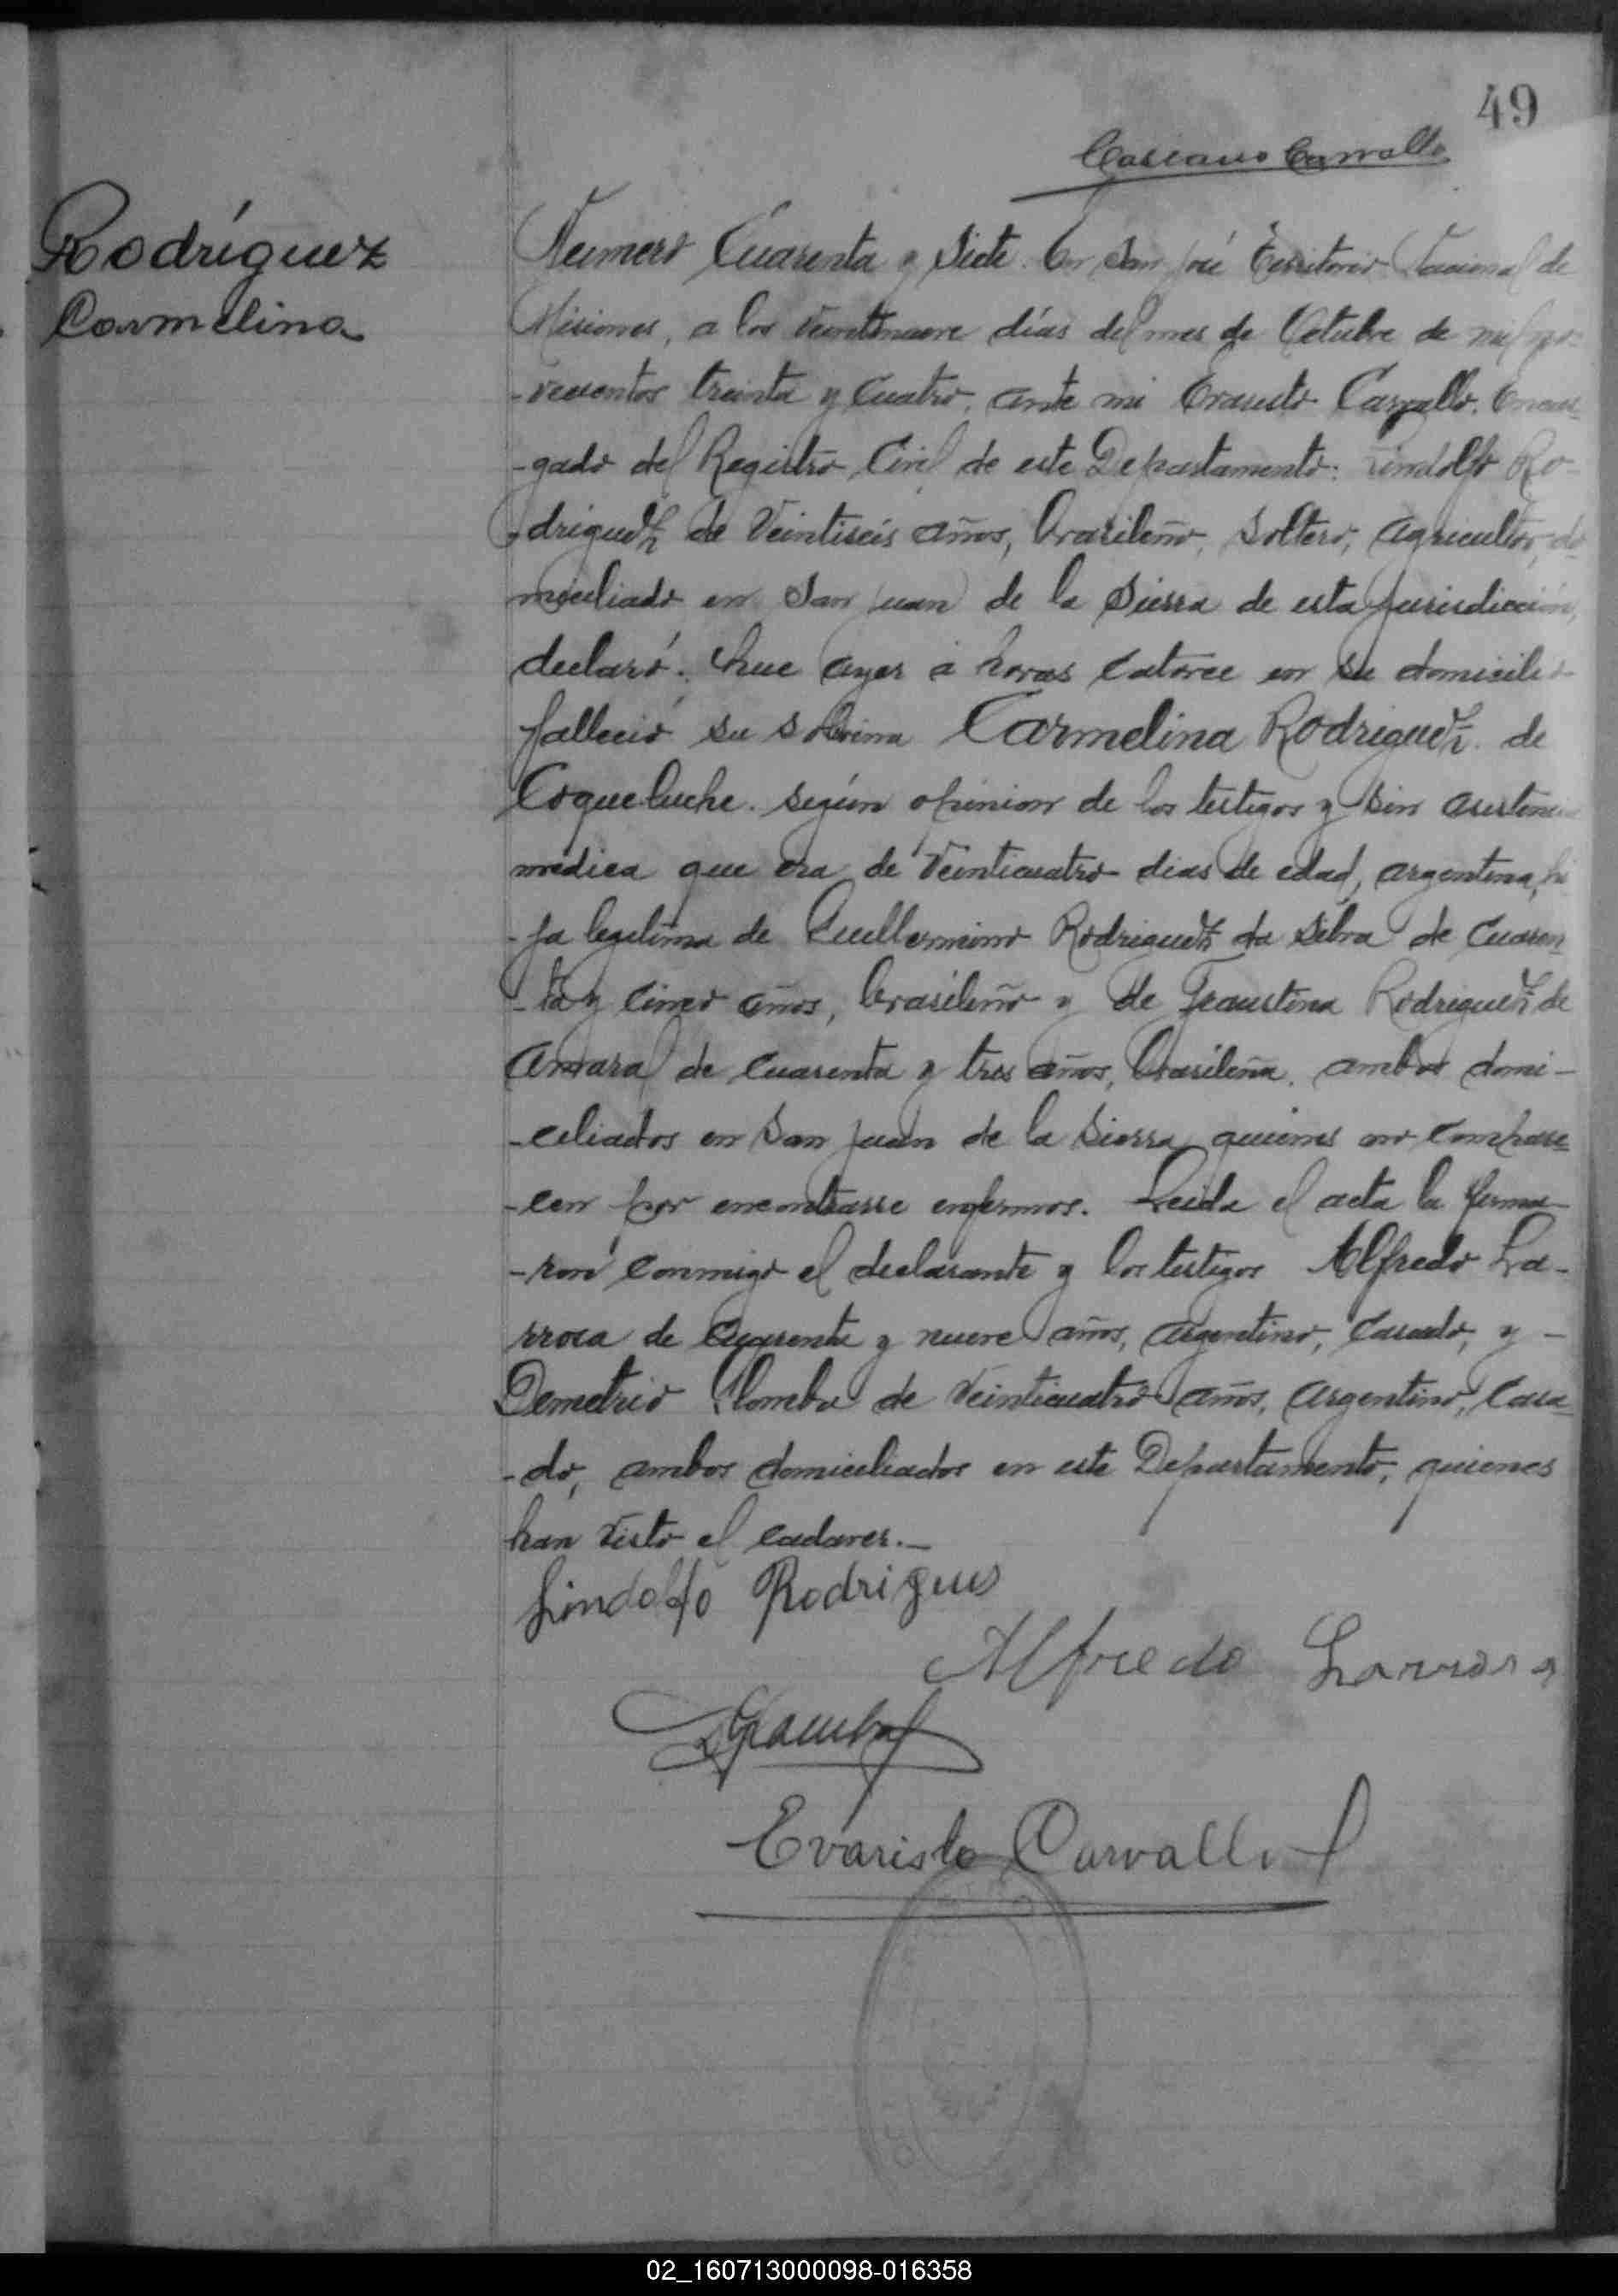 49
Casiano Carvallo
Rodríguez
Carmelina
Numero Cuarenta y Siete. En San José Territorio Nacional de
Misiones, a los veintinueve días del mes de Octubre de mil no=
-vecientos treinta y Cuatro, ante mi Evaristo Carvallo. Encar-
-gado del Registro Civil de este Departamento: Lindolfo Ro-
-driguez de Veintiseis años, brasileño, Soltero, agricultor, do
miciliado en San Juan de la Sierra de esta jurisdicción,
declaró: Que ayer á horas Catorce en su domicilio
falleció su sobrina Carmelina Rodriguez de
Coqueluche. según opinion de los testigos y sin asistencia
médica que era de Veinticuatro dias de edad, argentina, hi
-ja legitima de Guillermino Rodriguez da Silva de Cuaren
-ta y Cinco años, brasileño y de Faustina Rodriguez de
Amaral de Cuarenta y tres años, brasileña, ambos domi-
-ciliados en San Juan de la Sierra quienes no Compare=
-cen por encontrarse enfermos. Leida el acta la firma-
-ron Conmigo el declarante y los testigos Alfredo La-
rrosa de Cuarenta y nueve años, argentino, Casado, y -
Demetrio de Veinticuatro años, Argentino, Casa-
-do, ambos domiciliados en este Departamento, quienes
han visto el cadaver.-
Lindolfo Rodrigues
Alfredo Larrosa
Evaristo Carvallo
02_160713000098-016358